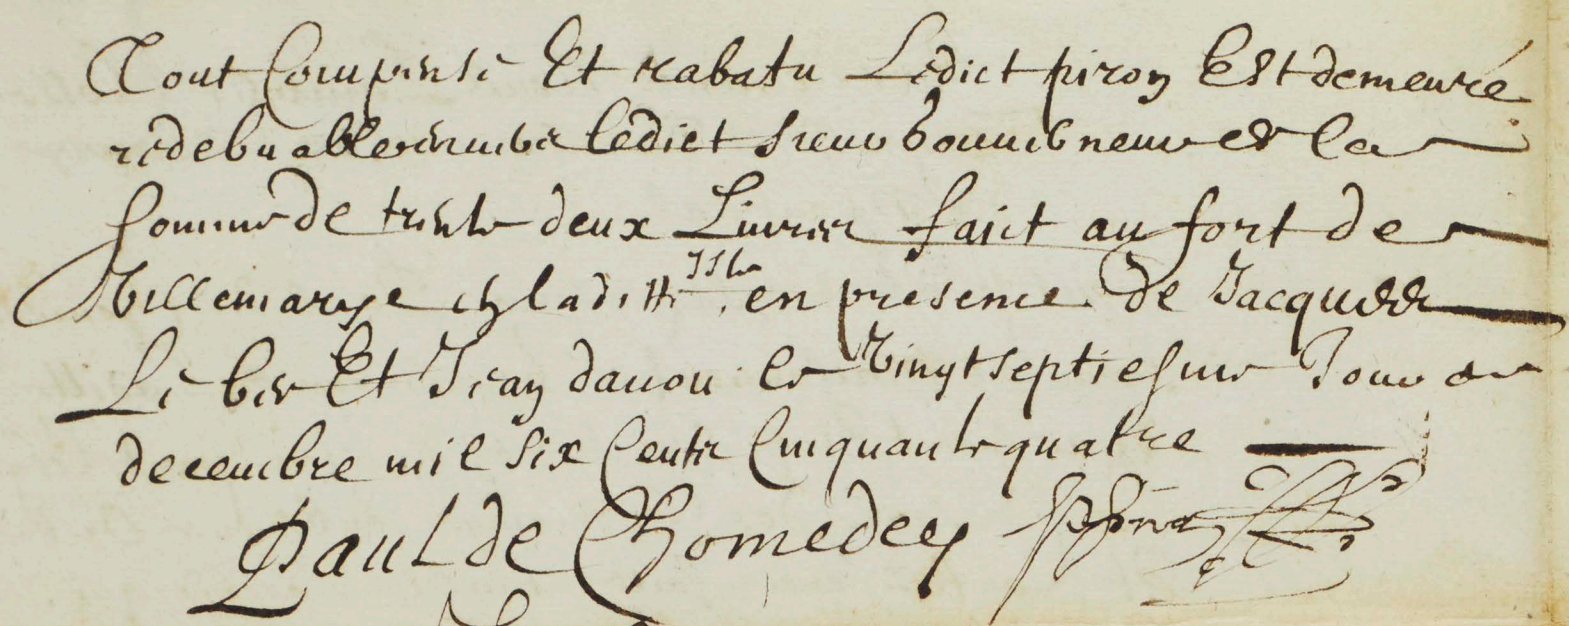 Tout Compensé Et rabatu Ledict piron Est demeuré
redebvable envers ledict sieur gouverneur de la
somme de trente deux Livres faict au fort de
Villemarye en laditte Isle en presence de Jacques
Le ber Et Jean davou le Vingt septiesme Jour de
decembre mil six Centz Cinquante quatre
Paul de Chomedey